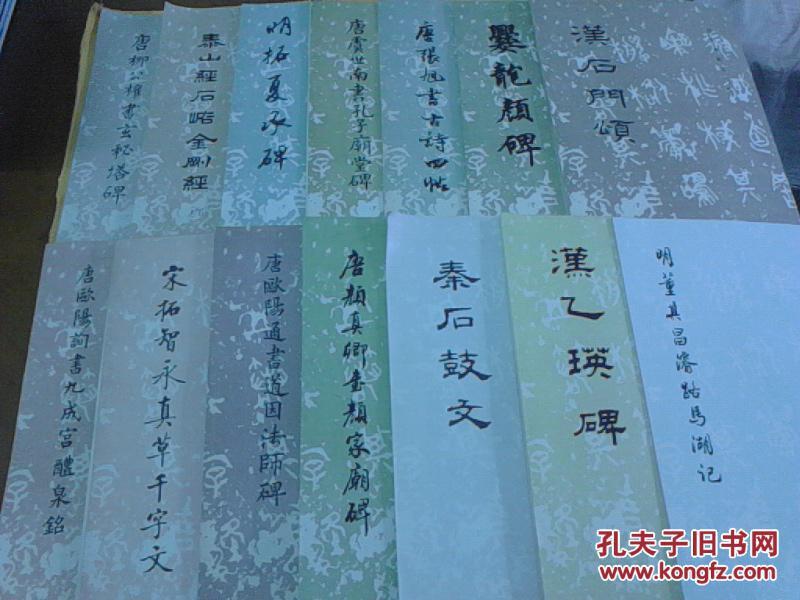 唐柳公權書玄秘塔碑
泰山經石峪金剛經
明拓夏承碑
唐虞世南書孔子廟堂碑
唐張旭書古詩四帖
爨龍顏碑
漢石門頌
唐歐陽詢書九成宮醴泉銘
宋拓智永真草千字文
唐歐陽通書道因法師碑
唐顏真卿書顏家廟碑
秦石鼓文
漢乙瑛碑
明董其昌濬路馬湖记
孔夫子旧书网
www.kongfz.com